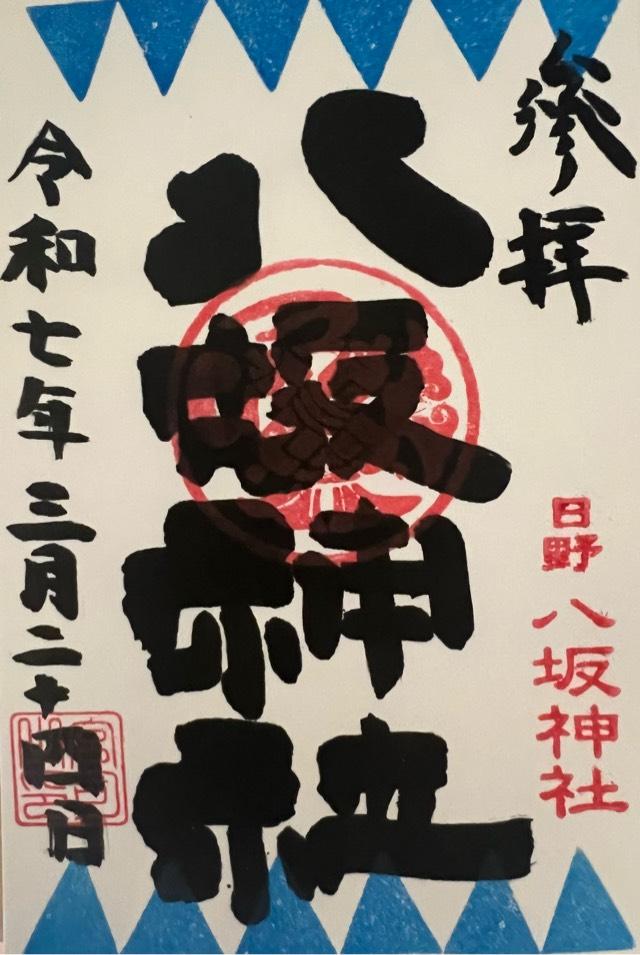 参拝
日野
八坂神社
八坂神社
令和七年三月二十四日